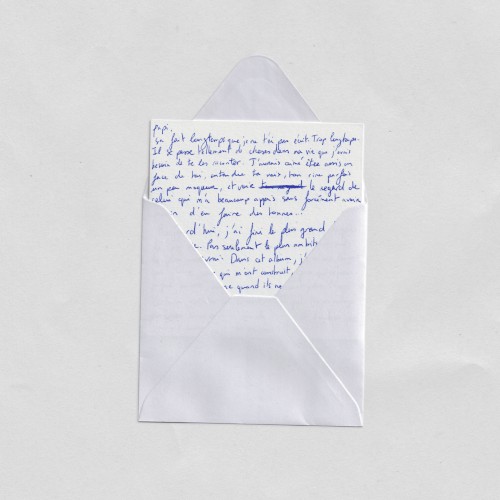 Papi,
ça fait longtemps que je ne t'ai pas écrit. Trop longtemps.
Il se passe tellement de choses dans ma vie que j'aurai
besoin de te les raconter. J'aurais aimé être assis en
face de toi, entendre ta voix, ton rire parfois
un peu moqueur, et voir le regard de
celui qui m'a beaucoup appris sans forcément avoir
d'en faire des tonnes...
rd'hui, j'ai fini le plus grand
Pas seulement le plus ambiti
aussi. Dans cet album, j'
qui m'ont construit,
ne quand ils ne